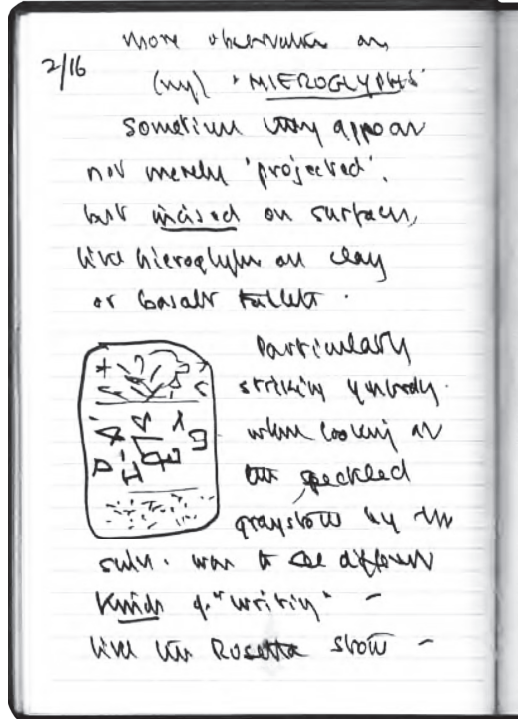 more observation on
2/16
(my) "HIEROGLYPHS"
Sometimes they appear
not merely 'projected',
but incised on surfaces,
like hieroglyphs on clay
or basalt tablets.
Particularly
striking yesterday.
when looking at
the speckled
gray stone by the
was to see different
kinds of "writing" -
like the Rosetta stone -